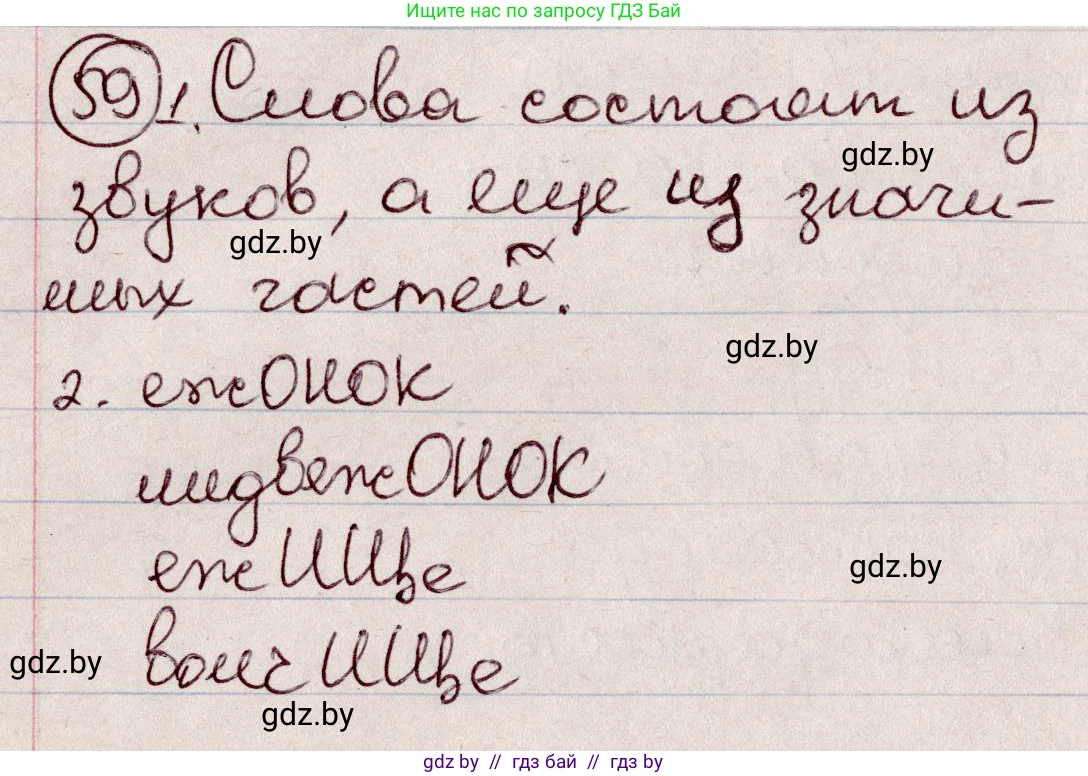 Ищите нас по запросу ГДЗ Бай
59 1. Слова состоят из
gdz.by
звуков, а еще из значи-
gdz.by
мых частей.
gdz.by
2. ежОНОК
медвежОНОК
ежИЩе
gdz.by
волчИЩе
gdz.by
gdz.by
gdz.by // гдз бай // гдз by